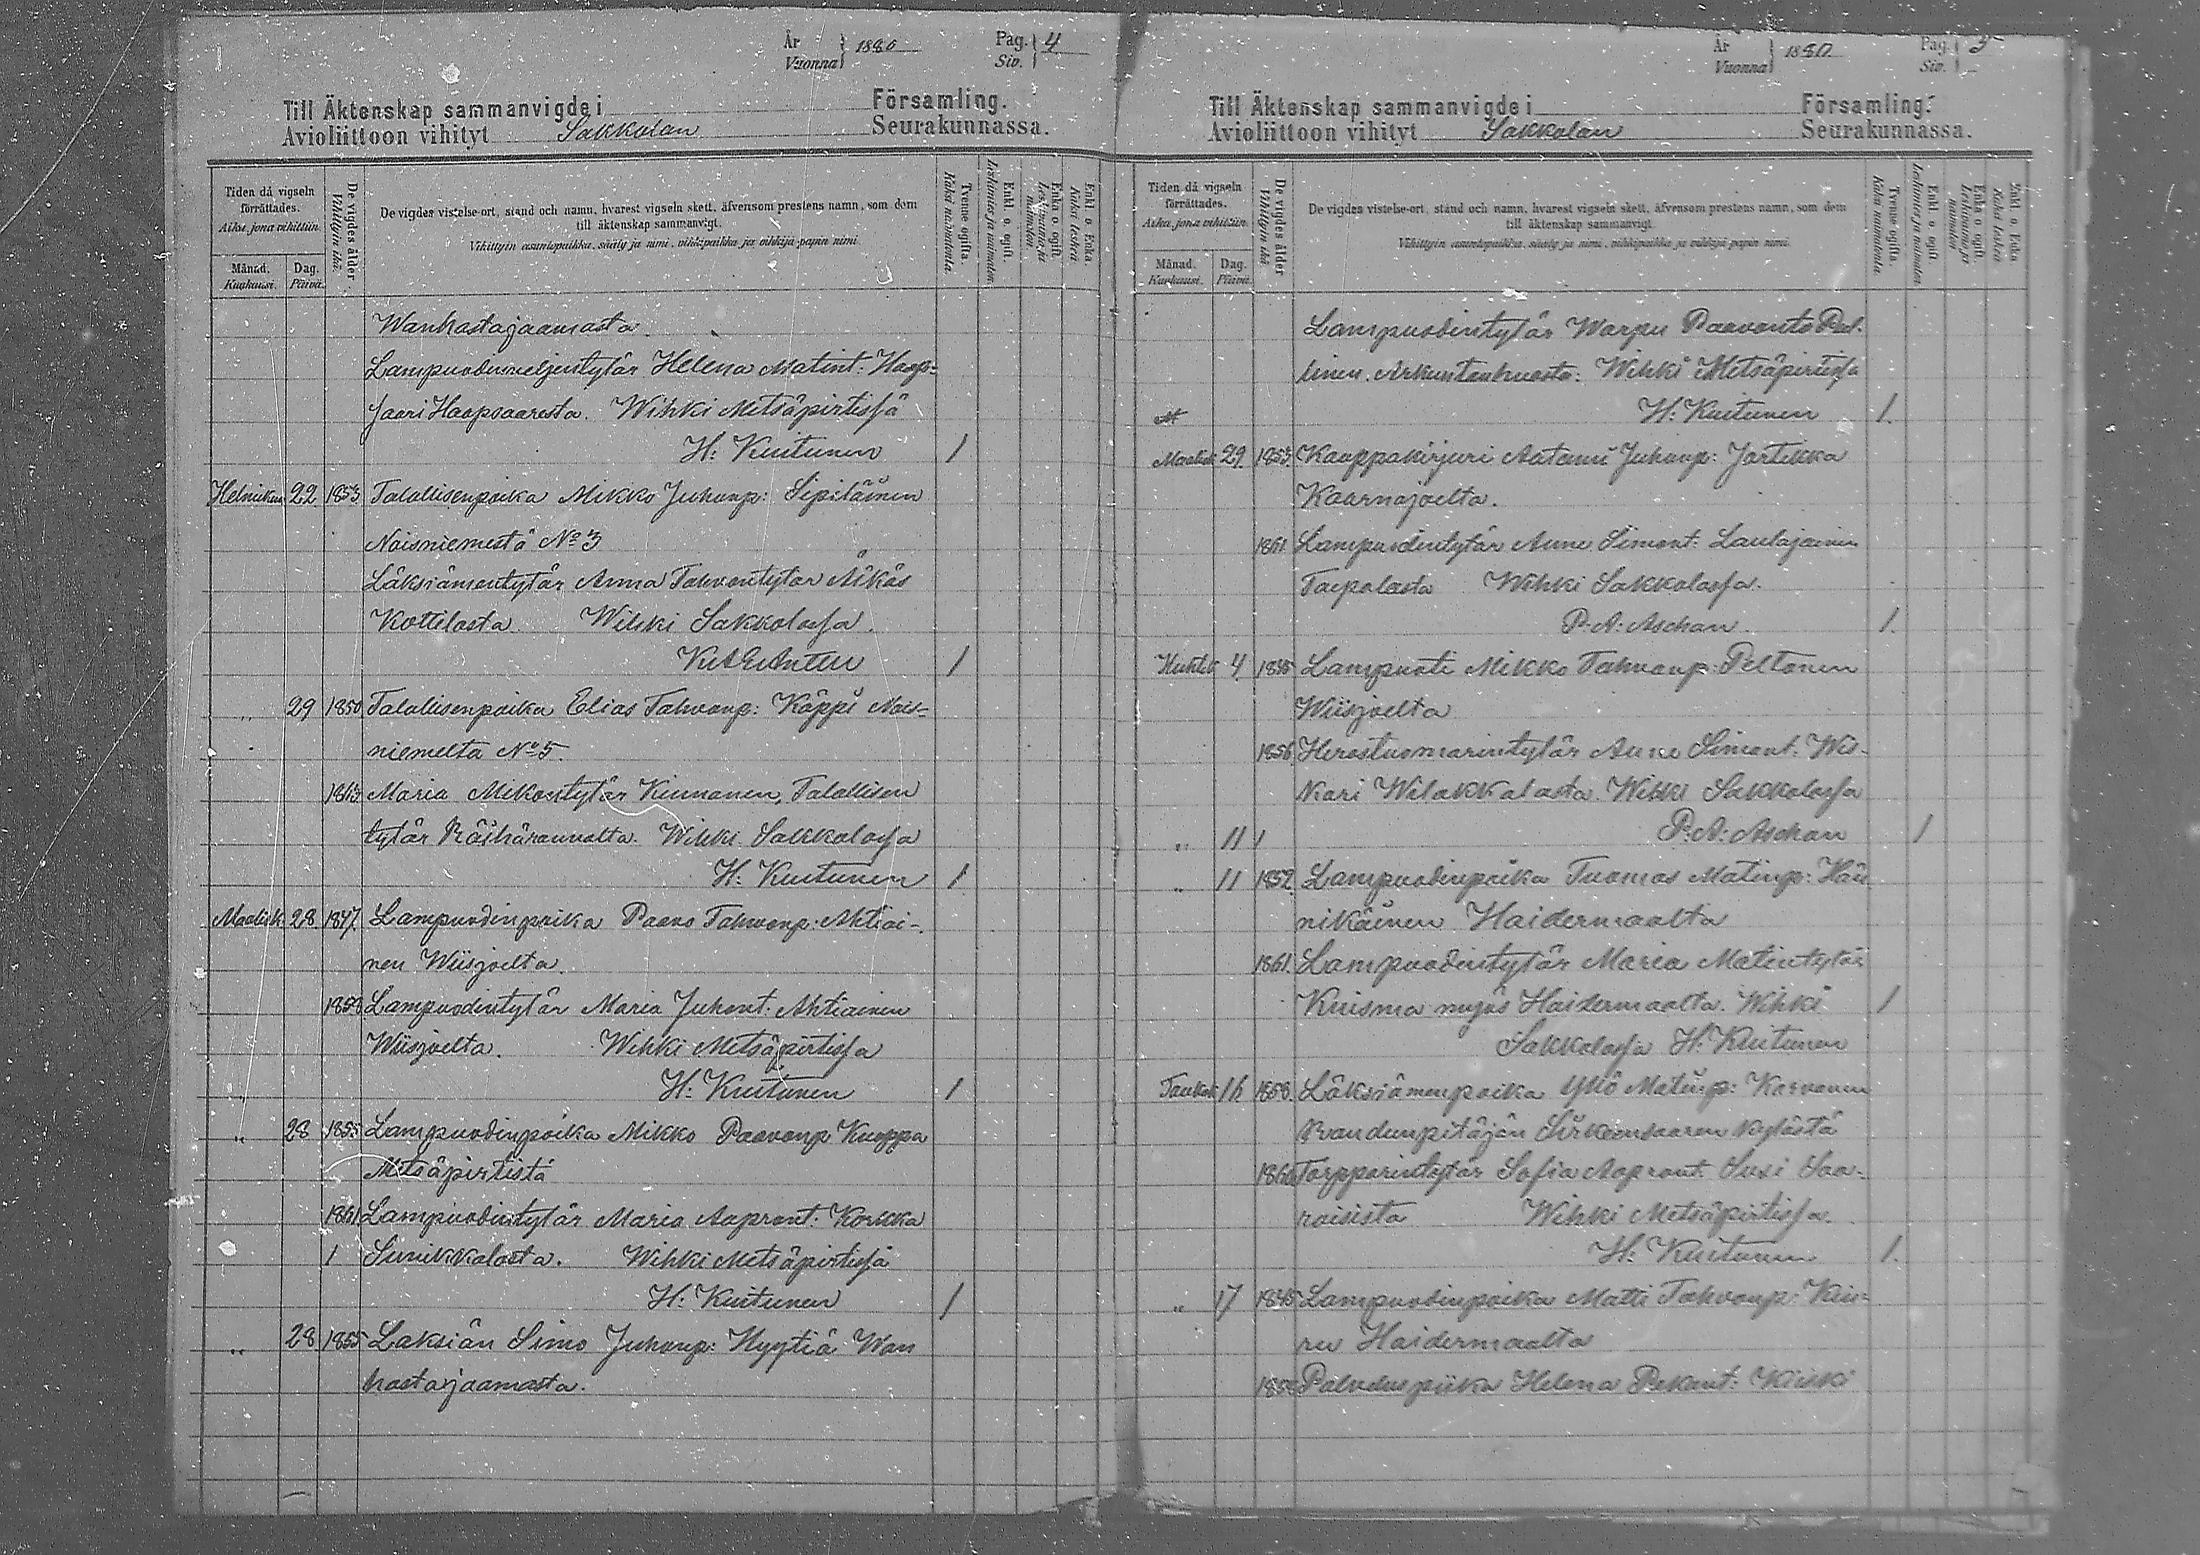 År
Vuonna } 1880
Pag.
Siv. } 4
Till Äktenskap sammanvigde i Församling.
Avioliittoon vihityt Sakkolan Seurakunnassa.
Tiden då vigseln förrättades.
Aika, jona vihittiin.
Månad.
Kuukausi.
Dag.
Päivä.
De vigdes ålder
Vihittyin ikä.
De vigdes vistelse-ort, stånd och namn, hvarest vigseln skett, äfvensom prestens namn, som dem
till äktenskap sammanvigt.
Vihittyin asuntopaikka, sääty ja nimi, vihkipaikka ja vihkijä-papin nimi.
Tvenne ogifta.
Kaksi naimatonta.
Enkl. o. ogift.
Leskimies ja naimaton.
Enka o. ogift.
Leskivaimo ja naimaton.
Enkl. o. Enka.
Kaksi leskeä.
Wanhastajaamasta.
Lampuodinveljentytär Helena Matint: Haap-
saari Haapsaaresta. Wihki Metsäpirtissä
H: Kuitunen 1
Helmikuu 22. 1853 Talallisenpoika Mikko Juhonp: Sipiläinen
Noisniemestä No 3
Läksiämentytär Anna Tahvontytar Äikäs
Kottilasta. Wihki Sakkolassa.
1
„ 29 1850 Talallisenpoika Elias Tahvonp: Käppi Nois-
niemeltä No 5.
1863 Maria Mikontytär Kinnanen, Talallisen
tytär Räihärannalta. Wihki Sakkolassa
H: Kuitunen 1
Maalisk. 28 1847. Lampuodinpoika Paavo Tahvonp: Ahtiai-
nen Wiisjoelta.
1858 Lampuodintytär Maria Juhont: Ahtiainen
Wiisjoelta. Wihki Metsäpirtissä
H: Kuitunen 1
„ 28 1855 Lampuodinpoika Mikko Paavonp Kuoppa
Metsäpirtistä
1861 Lampuodintytär Maria Aapront: Korkka
1 Sunikkalasta. Wihki Metsäpirtissä
H: Kuitunen 1
„ 28 1855 Laksiän Simo Juhonp: Hyytiä Wan
hastajaamasta.
År
Vuonna } 1880
Pag.
Siv. } 5
Till Äktenskap sammanvigde i Församling.
Avioliittoon vihityt Sakkolan Seurakunnassa.
Tiden då vigseln förrättades.
Aika, jona vihittiin.
Månad.
Kuukausi.
Dag.
Päivä.
De vigdes ålder
Vihittyin ikä.
De vigdes vistelse-ort, stånd och namn, hvarest vigseln skett, äfvensom prestens namn, som dem
till äktenskap sammanvigt.
Vihittyin asuntopaikka, sääty ja nimi, vihkipaikka ja vihkijä-papin nimi.
Tvenne ogifta.
Kaksi naimatonta.
Enkl. o. ogift.
Leskimies ja naimaton.
Enka o. ogift.
Leskivaimo ja naimaton.
Enkl. o. Enka.
Kaksi leskeä.
Lampuodintytär Warpu Paavonto Pul-
linen. Arkuntanhuasta. Wihki Metsäpirtissä
H: Kuitunen 1.
Maalisk 29. 1853. Kauppakirjuri Aatami Juhonp: Jortikka
Kaarnajoelta.
1861 Lampuodintytär Anne Simont: Laulajainen
Taipalesta Wihki Sakkolassa.
P: A: Aschan. 1.
Huhtik 4. 1835 Lampuoti Mikko Tahvonp: Peltonen
Wiisjoelta
1856 Herastuomarintytär Anne Simont: Wis-
kari Wilakkalasta. Wihki Sakkolassa
„ 11 1 P: A: Aschan 1
„ 11 1859. Lampuodinpoika Tuomas Matinp: Hän
nikäinen Haidermaalta
1861. Lampuodintytär Maria Matintytär
Kuisma myös Haidermaalta. Wihki 1
Sakkolassa H: Kuitunen
Toukok 16 1858. Läksiämenpoika Yrjö Matinp: Karvonen
Raudunpitäjän Sirkeinsaaren kylästä
1860 Torpparintytär Sofia Aapront. Susi Saa-
roisista Wihki Metsäpirtissä.
H: Kuitunen 1.
„ 17 1845 Lampuodinpoika Matti Tahvonp: Kiu-
ru Haidermaalta
Palveluspiika Helena Pekant: Kiiski